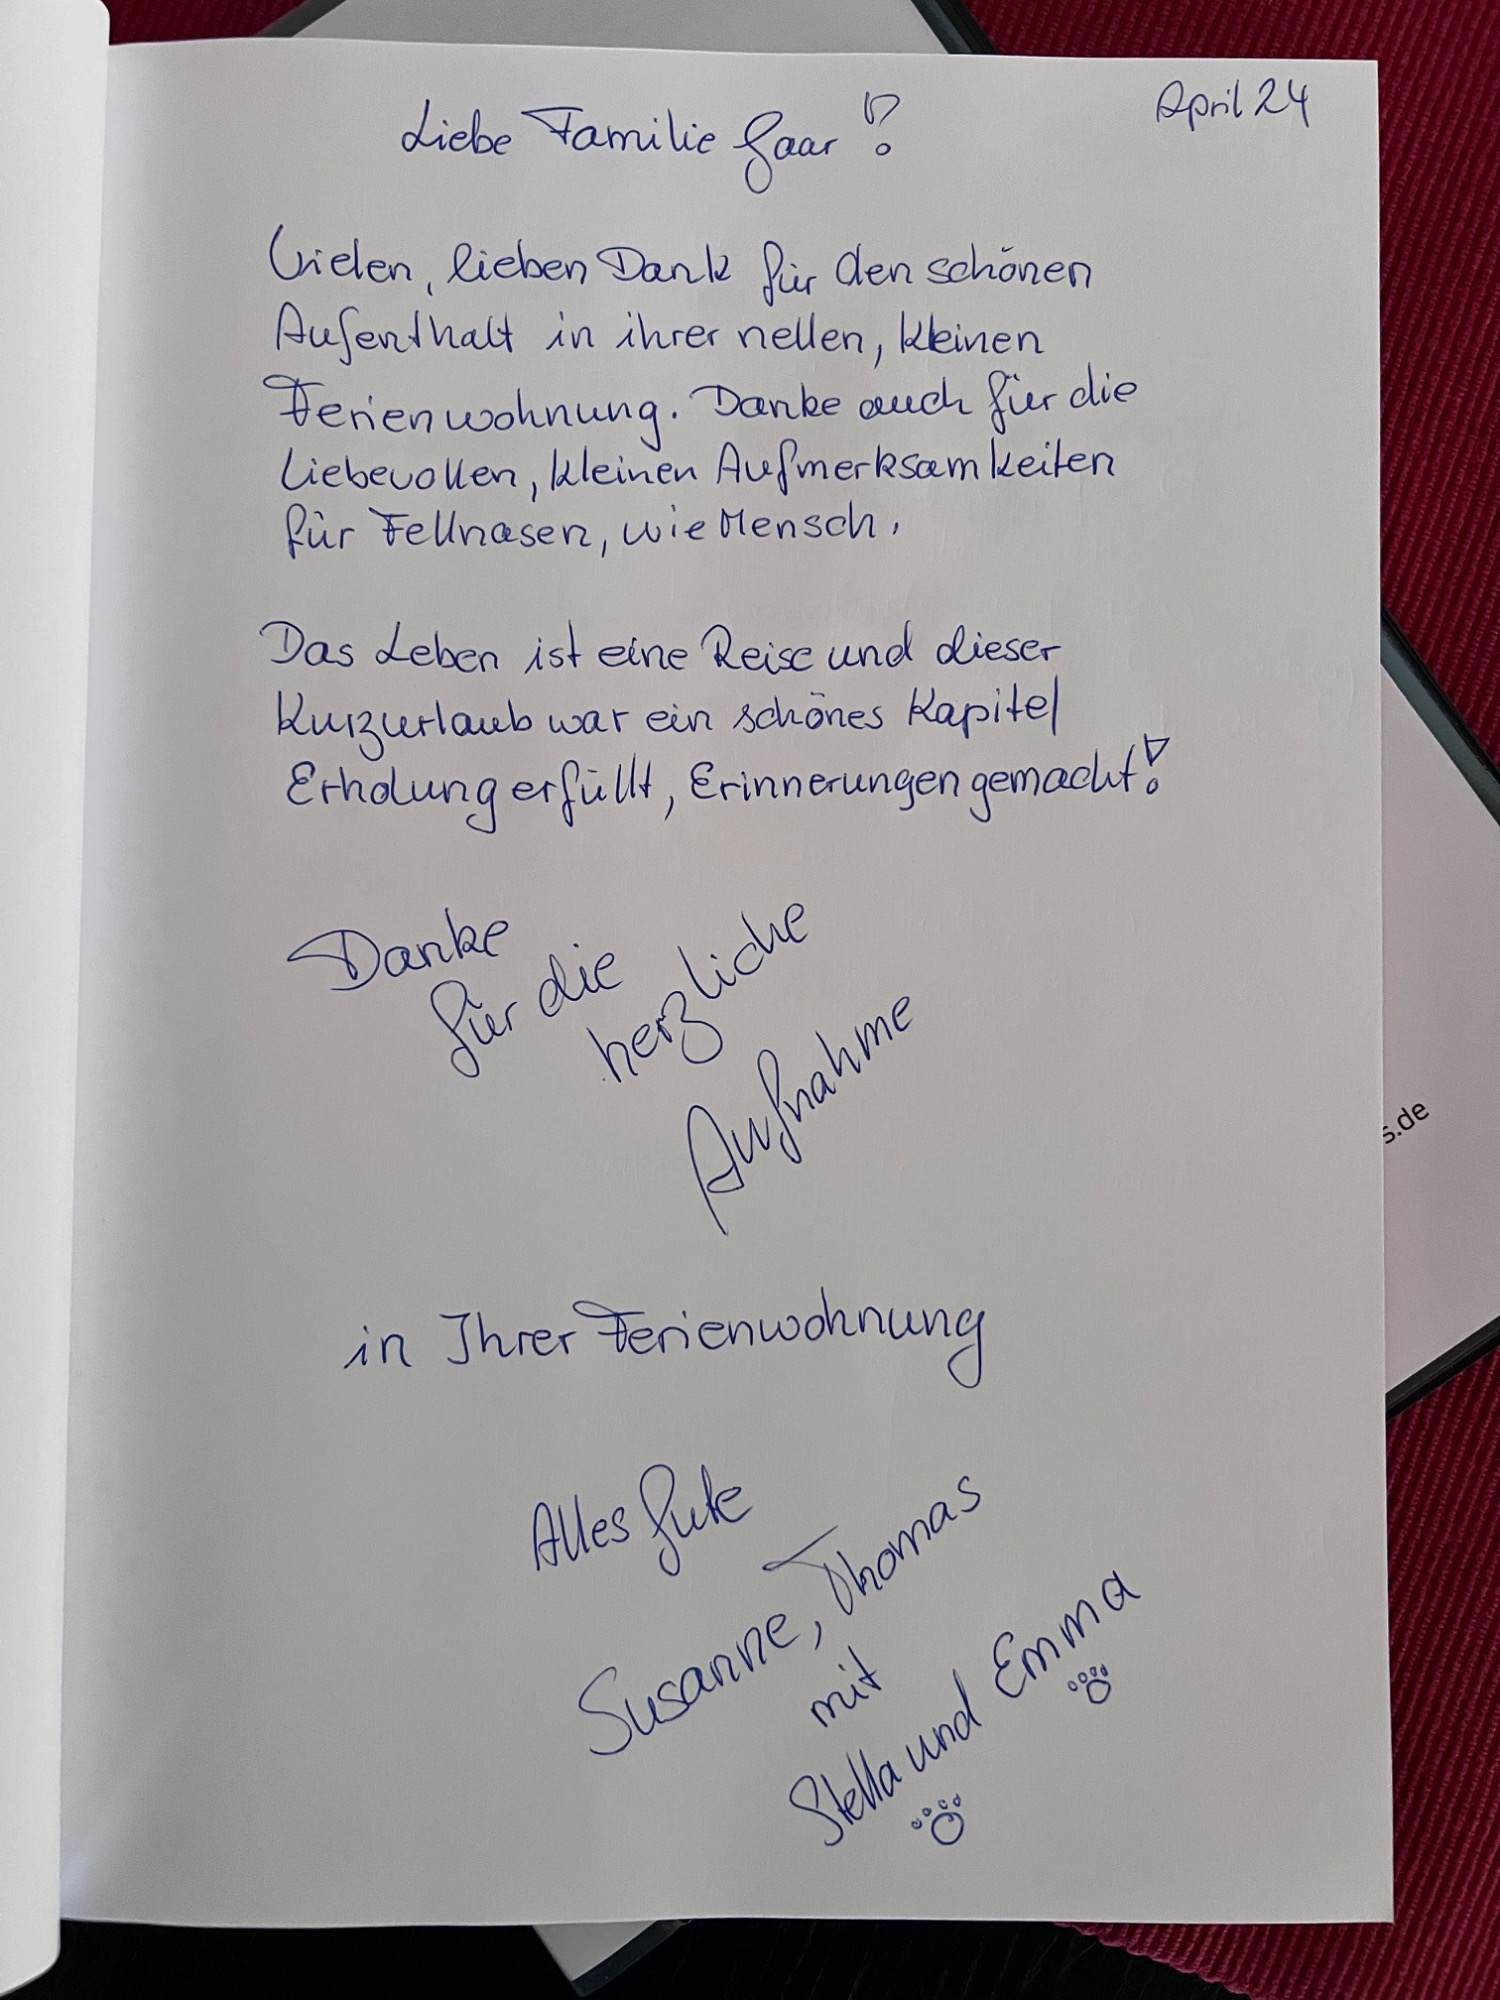 April 24
Liebe Familie Gaar!
Vielen, lieben Dank für den schönen
Aufenthalt in ihrer netten, kleinen
Ferienwohnung. Danke auch für die
Liebevollen, kleinen Aufmerksamkeiten
für Fellnasen, wie Mensch.
Das Leben ist eine Reise und dieser
Kurzurlaub war ein schönes Kapitel
Erholung erfüllt, Erinnerungen gemacht!
Danke
für die
herzliche
Aufnahme
in Ihrer Ferienwohnung
Alles Gute
Susanne, Thomas
mit
Stella und Emma
s.de